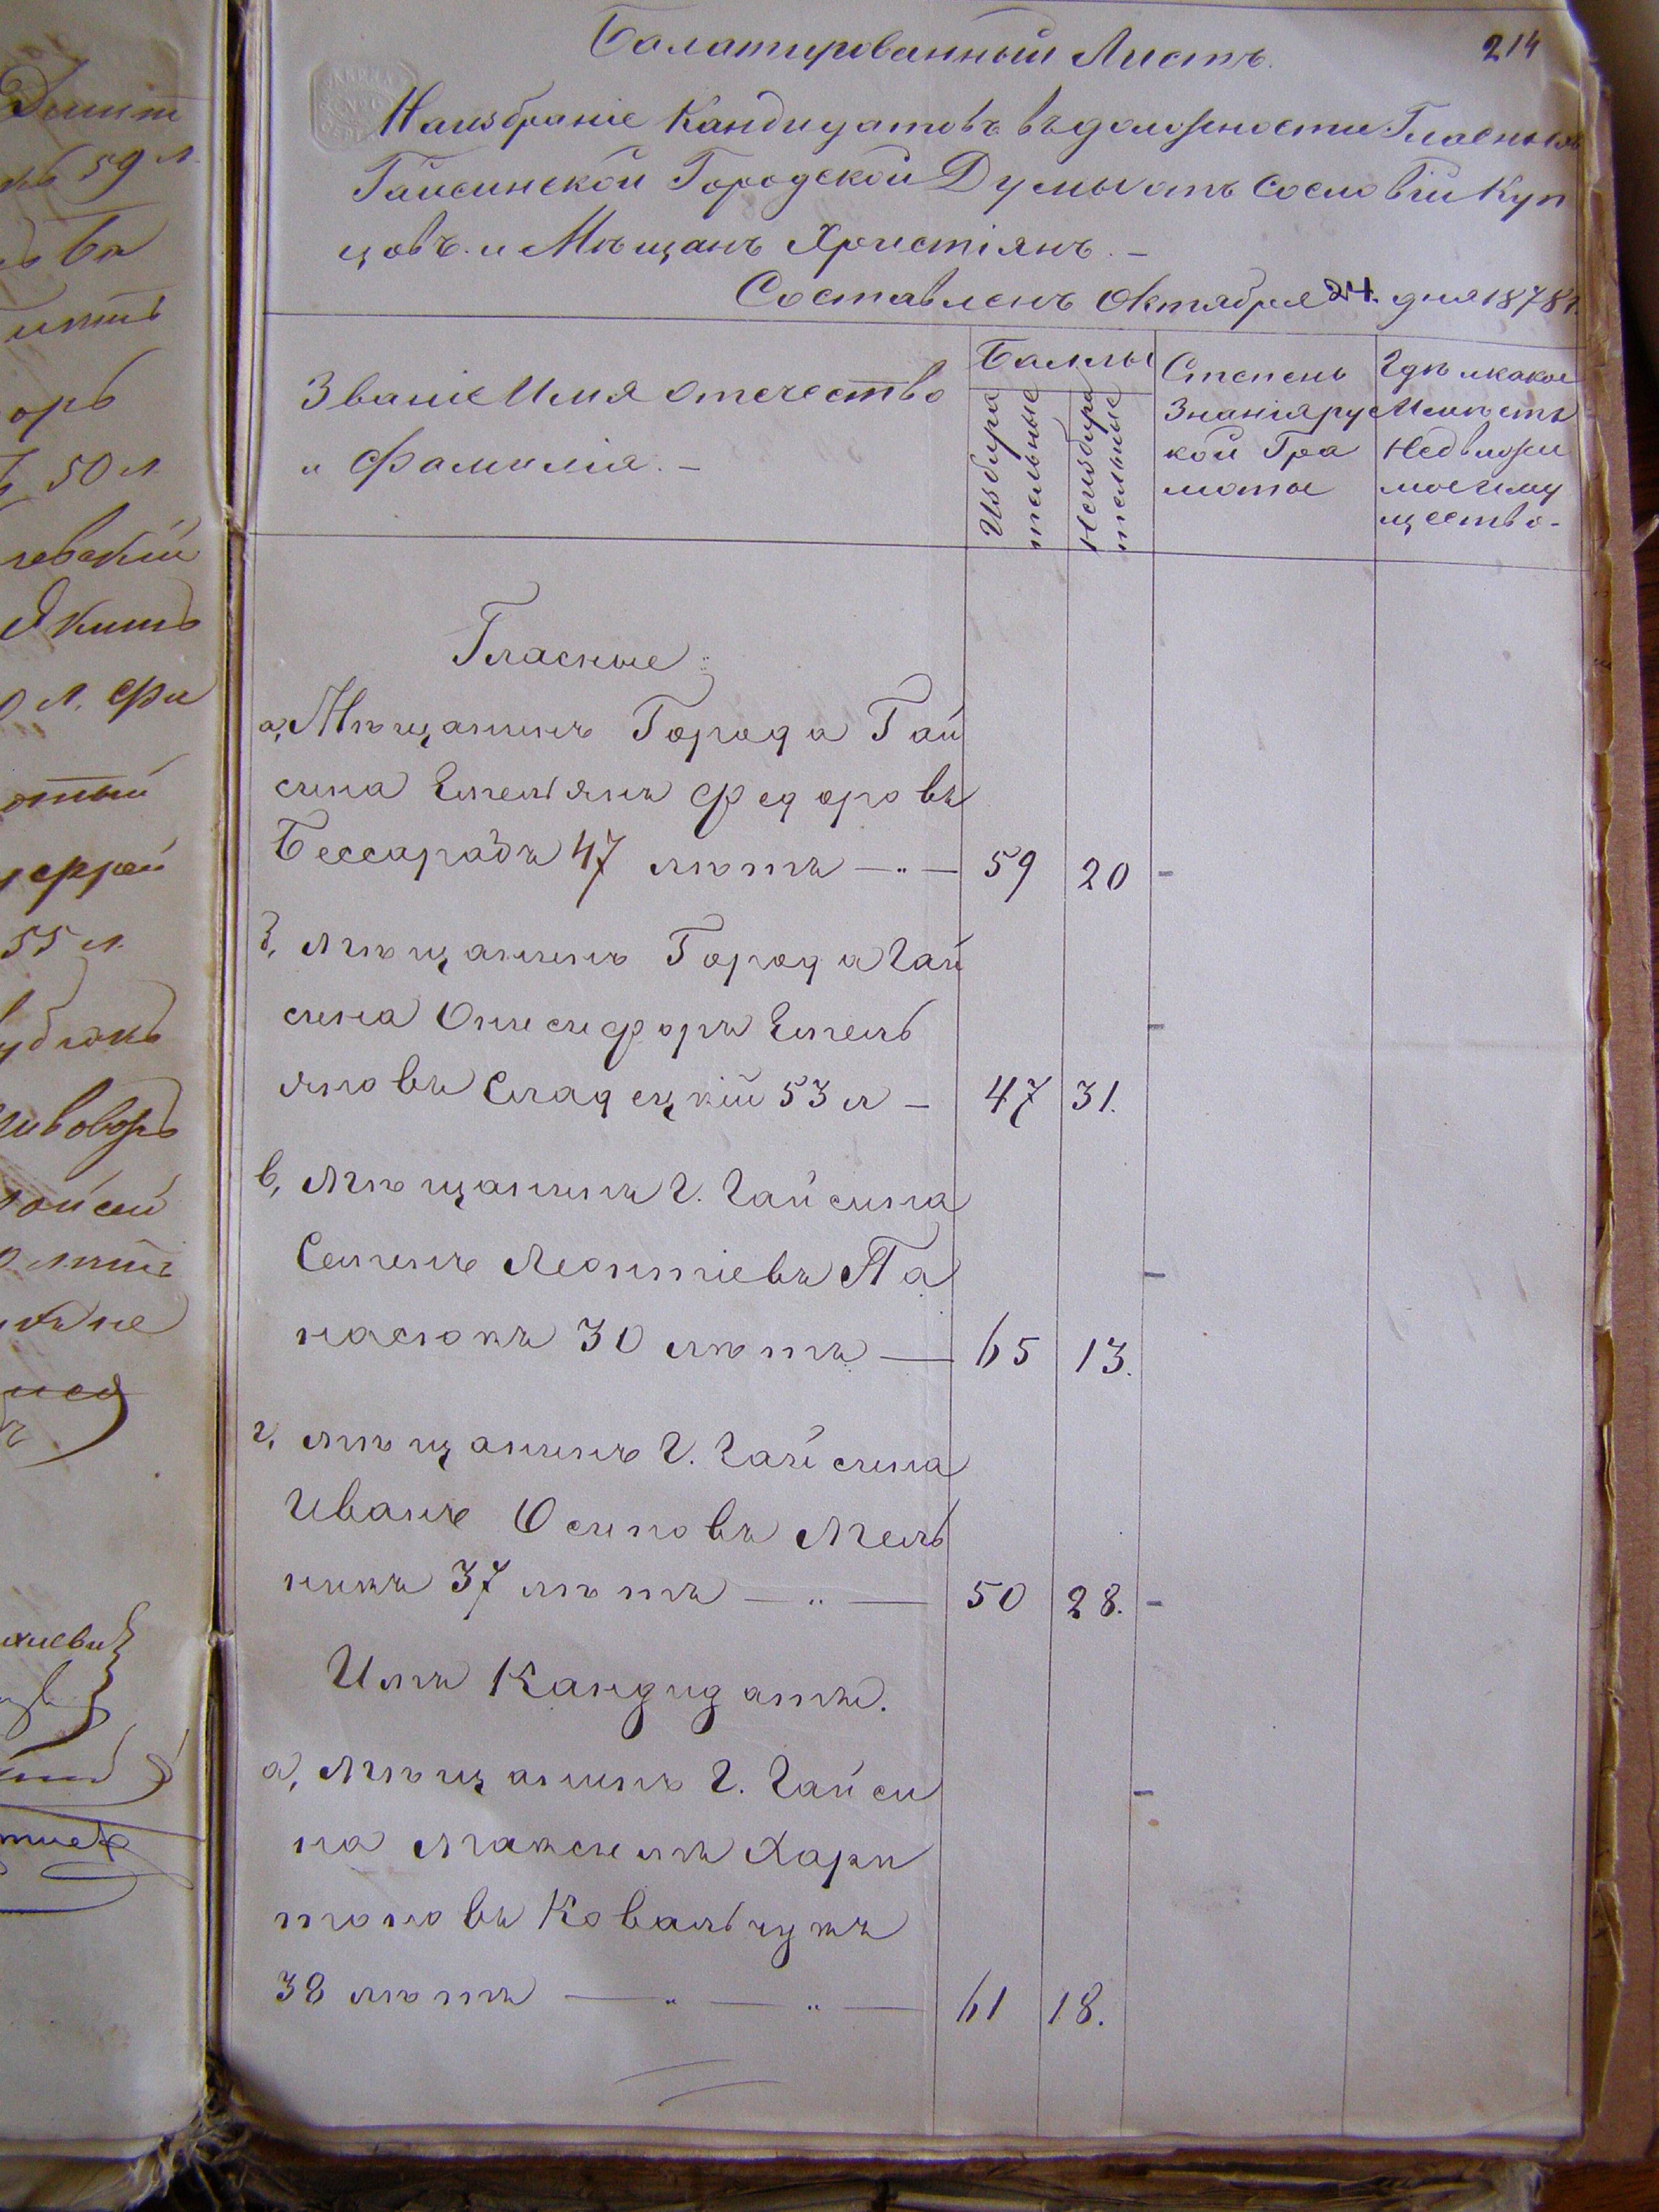 Балатированный Листъ.
214
На избраніе Кандидатовъ въ должности Гласныхъ
Гайсинской Городской Думы отъ сословій Куп
цовъ и Мѣщанъ Христіянъ. –
Составленъ Октября 24. дня 1878 г.
Званіе Имя отечество
и Фамилія. –
Баллы
Избира
тельные
Неизбира
тельные
Степень
Знанія рус
кой Гра
моты
Гдѣ и какое
Имѣетъ
Недвижи
мое иму
щество-
Гласные:
а, Мѣщанинъ Города Гай
сина Емельянъ Федоровъ
Бессарабъ 47 лѣтъ — „ — 59 20 -
б, Мѣщанинъ Города Гай
сина Онисифоръ Емель
яновъ Сладецкій 53 л – 47 31. -
в, Мѣщанинъ Г. Гайсина
Семенъ Леонтіевъ Па
насюкъ 30 лѣтъ — 65 13. -
г, Мѣщанинъ Г. Гайсина
Иванъ Осиповъ Мель
никъ 37 лѣтъ — „ — 50 28. -
Имъ Кандидаты.
а, Мѣщанинъ Г. Гайси
на Максимъ Хари
тоновъ Ковальчукъ
38 лѣтъ — „ — „ — 61 18. -
59 л
50 л
55 л